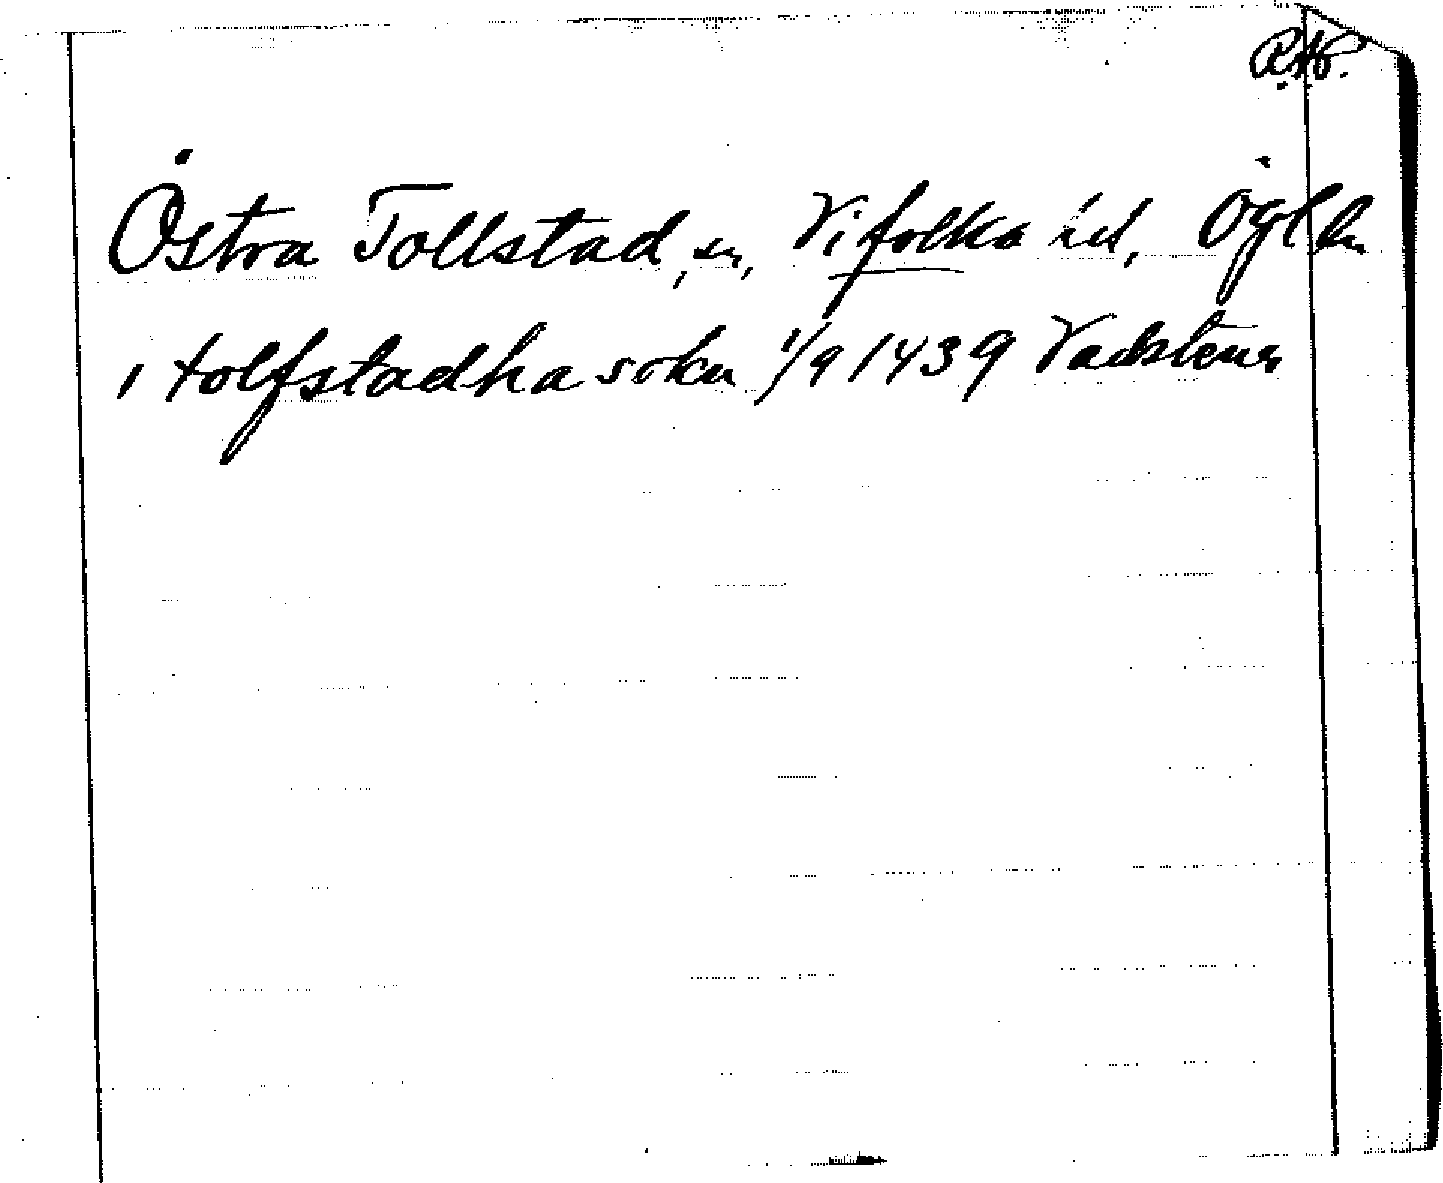 Östra Tollstad, sn, Vifolka hd, Ögl ln
i tolfstadha sokn 1/9 1439 Vadstena